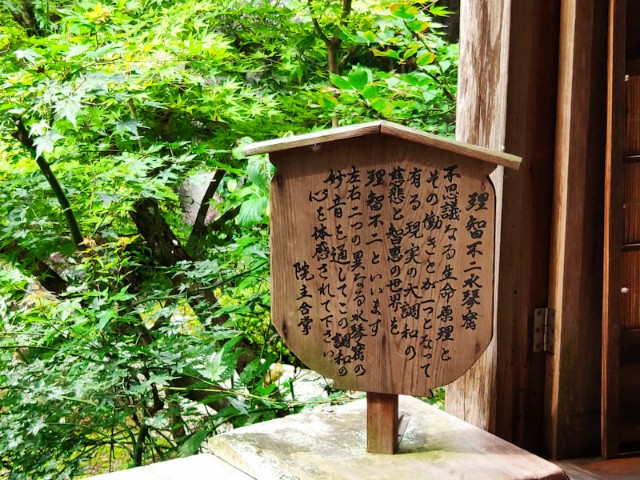 理智不二水琴窟
不思議なる生命原理と
その働きとが一つとなって
有る現実の大調和の
慈悲と智恵の世界を
理智不二といいます
左右二つの異なる水琴窟の
妙音を通してこの調和の
心を体感されて下さい
院主合掌